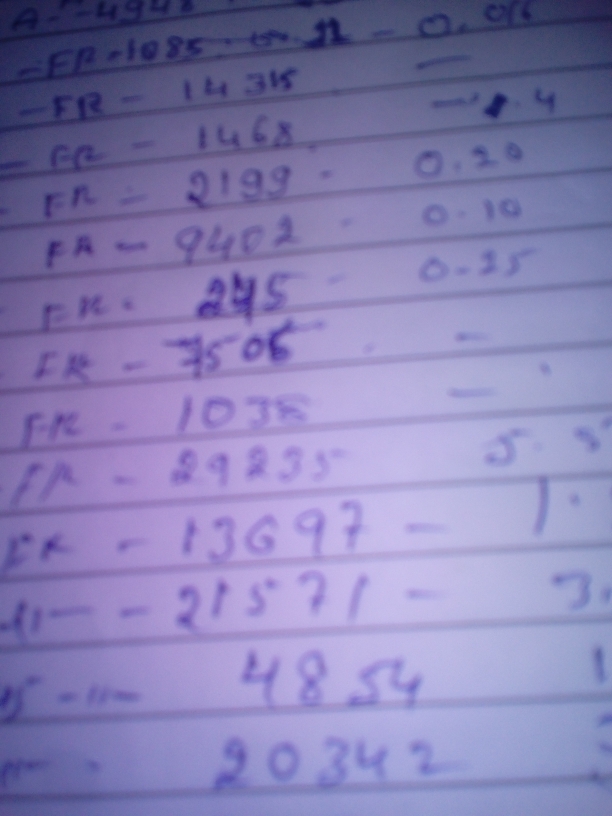 A. - 4948
- FR - 1085 - 0.016
- FR - 14315 -
- FR - 1468 - .4
- FR - 2199 - 0.20
FR - 9402 - 0.10
FR - 245 - 0.25
FR - 7506 . -
FR - 1038 -
FR - 29235 5.5
FR - 13697 - 1.
-11- - 21571 - 3.
15 - 11 - 4854 1
-11- . 20342